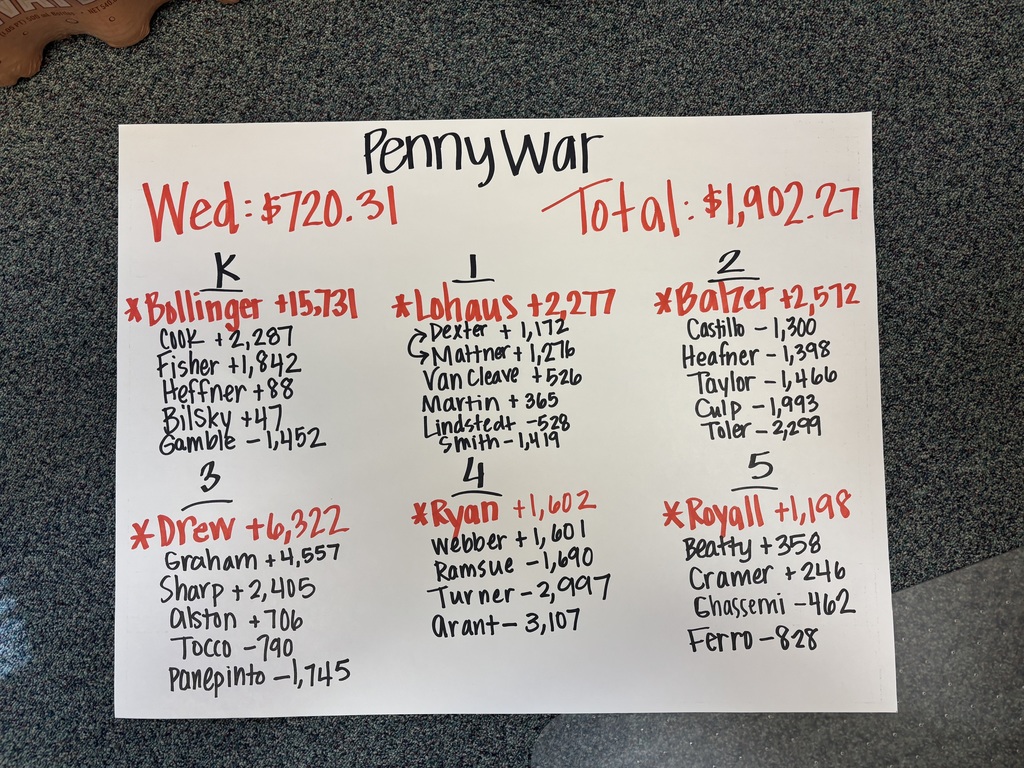 Penny War
Wed: $720.31
Total: $1,902.27
K
*Bollinger +15,731
Cook +2,287
Fisher +1,842
Heffner +88
Bilsky +47
Gamble -1,452
1
*Lohaus +2,277
Dexter + 1,172
Mattner + 1,276
Van Cleave +526
Martin + 365
Lindstedt -528
Smith - 1,419
2
*Balzer +2,572
Castillo - 1,300
Heafner - 1,398
Taylor - 1,466
Culp - 1,993
Toler - 2,299
3
*Drew +6,322
Graham +4,557
Sharp +2,405
Alston +706
Tocco -790
Panepinto -1,745
4
*Ryan +1,602
Webber +1,601
Ramsue -1,690
Turner -2,997
Arant - 3,107
5
*Royall +1,198
Beatty +358
Cramer +246
Ghassemi -462
Ferro -828